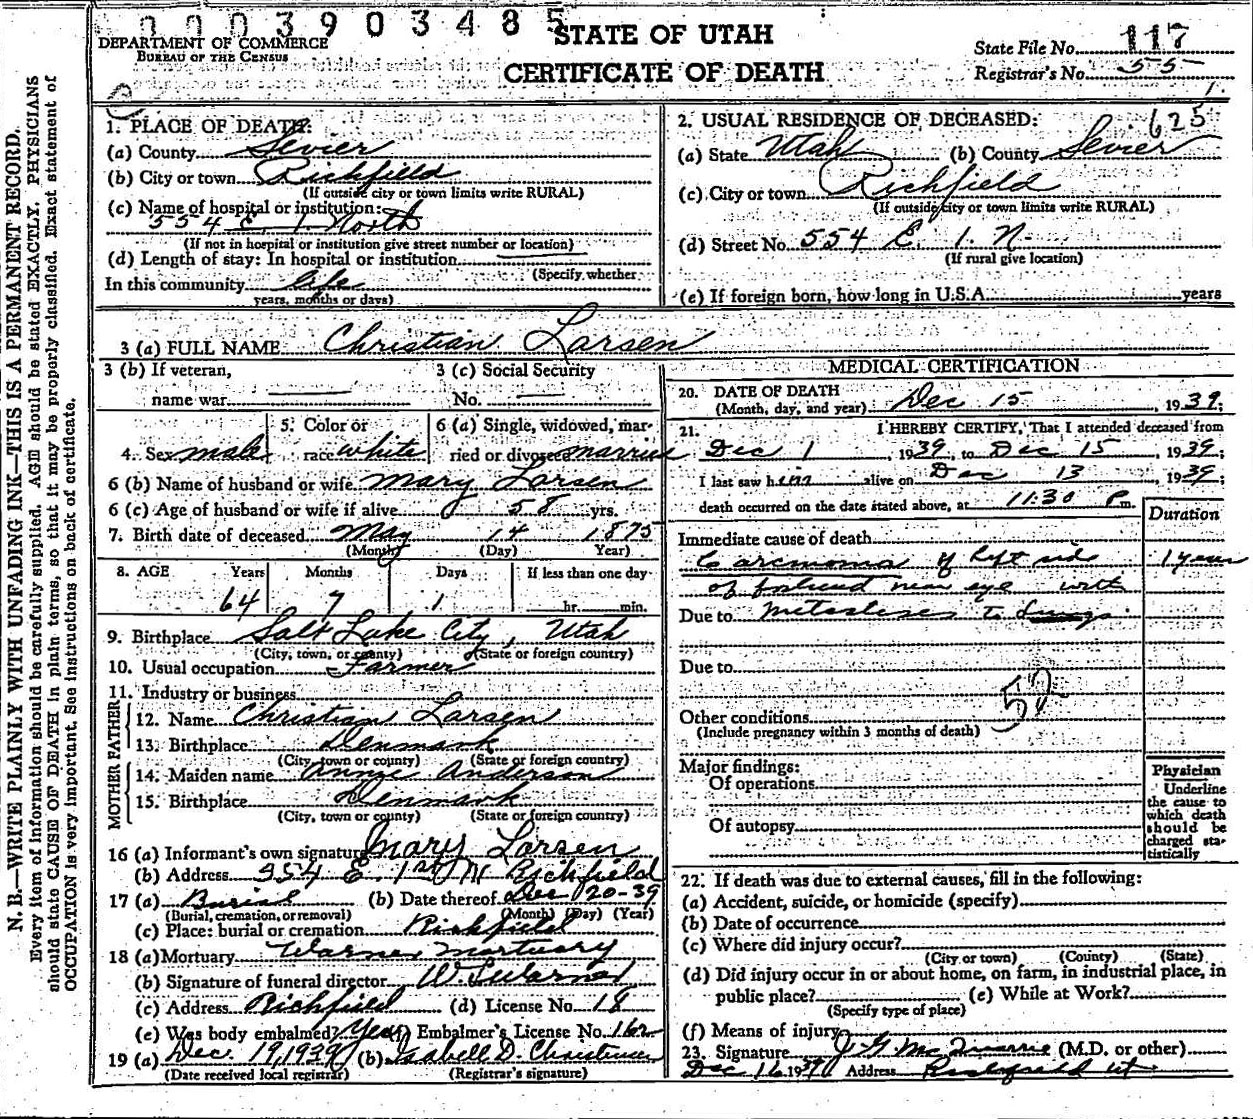 0003903485
STATE OF UTAH
CERTIFICATE OF DEATH
DEPARTMENT OF COMMERCE
BUREAU OF THE CENSUS
State File No. 117
Registrar's No. 55
N. B.—WRITE PLAINLY WITH UNFADING INK—THIS IS A PERMANENT RECORD.
Every item of information should be carefully supplied. AGE should be stated EXACTLY. PHYSICIANS
should state CAUSE OF DEATH in plain terms, so that it may be properly classified. Exact statement of
OCCUPATION is very important. See instructions on back of certificate.
1. PLACE OF DEATH:
(a) County Sevier
(b) City or town Richfield
(If outside city or town limits write RURAL)
(c) Name of hospital or institution:
554 E. 1. North
(If not in hospital or institution give street number or location)
(d) Length of stay: In hospital or institution
(Specify whether
In this community life
years, months or days)
2. USUAL RESIDENCE OF DECEASED: 625
(a) State Utah (b) County Sevier
(c) City or town Richfield
(If outside city or town limits write RURAL)
(d) Street No. 554 E. 1. N.
(If rural give location)
(e) If foreign born, how long in U.S.A. years
3 (a) FULL NAME Christian Larsen
3 (b) If veteran,
name war
3 (c) Social Security
No.
4. Sex male
5. Color or
race white
6 (a) Single, widowed, mar-
ried or divorced married
6 (b) Name of husband or wife Mary Larsen
6 (c) Age of husband or wife if alive 58 yrs.
7. Birth date of deceased May 14 1875
(Month) (Day) Year)
8. AGE Years Months Days If less than one day
64 7 1 hr. min.
9. Birthplace Salt Lake City, Utah
(City, town, or county) (State or foreign country)
10. Usual occupation Farmer
11. Industry or business
FATHER
12. Name Christian Larsen
13. Birthplace Denmark
(City, town or county) (State or foreign country)
MOTHER
14. Maiden name Annie Anderson
15. Birthplace Denmark
(City, town or county) (State or foreign country)
16 (a) Informant's own signature Mary Larsen
(b) Address 354 E. 1st N Richfield
17 (a) Burial (b) Date thereof Dec 20-39
(Burial, cremation, or removal) (Month) (Day) (Year)
(c) Place: burial or cremation Richfield
18 (a) Mortuary Warner Mortuary
(b) Signature of funeral director
(c) Address Richfield (d) License No. 18
(e) Was body embalmed? Yes (f) Embalmer's License No. 162
19 (a) Dec. 19, 1939 (b) Isabell D. Christensen
(Date received local registrar) (Registrar's signature)
MEDICAL CERTIFICATION
20. DATE OF DEATH
(Month, day, and year) Dec 15, 1939;
21. I HEREBY CERTIFY, That I attended deceased from
Dec 1, 1939, to Dec 15, 1939;
I last saw him alive on Dec 13, 1939;
death occurred on the date stated above, at 11:30 P m.
Duration
Immediate cause of death
Carcinoma of left side 1 year
of forehead near eye with
Due to Metastases to Lungs
Due to
52
Other conditions
(Include pregnancy within 3 months of death)
Major findings:
Of operations
Of autopsy
Physician
Underline
the cause to
which death
should be
charged sta-
tistically
22. If death was due to external causes, fill in the following:
(a) Accident, suicide, or homicide (specify)
(b) Date of occurrence
(c) Where did injury occur?
(City or town) (County) (State)
(d) Did injury occur in or about home, on farm, in industrial place, in
public place? (e) While at Work?
(Specify type of place)
(f) Means of injury
23. Signature J G McQuarrie (M.D. or other)
Dec 16 1939 Address Richfield Ut